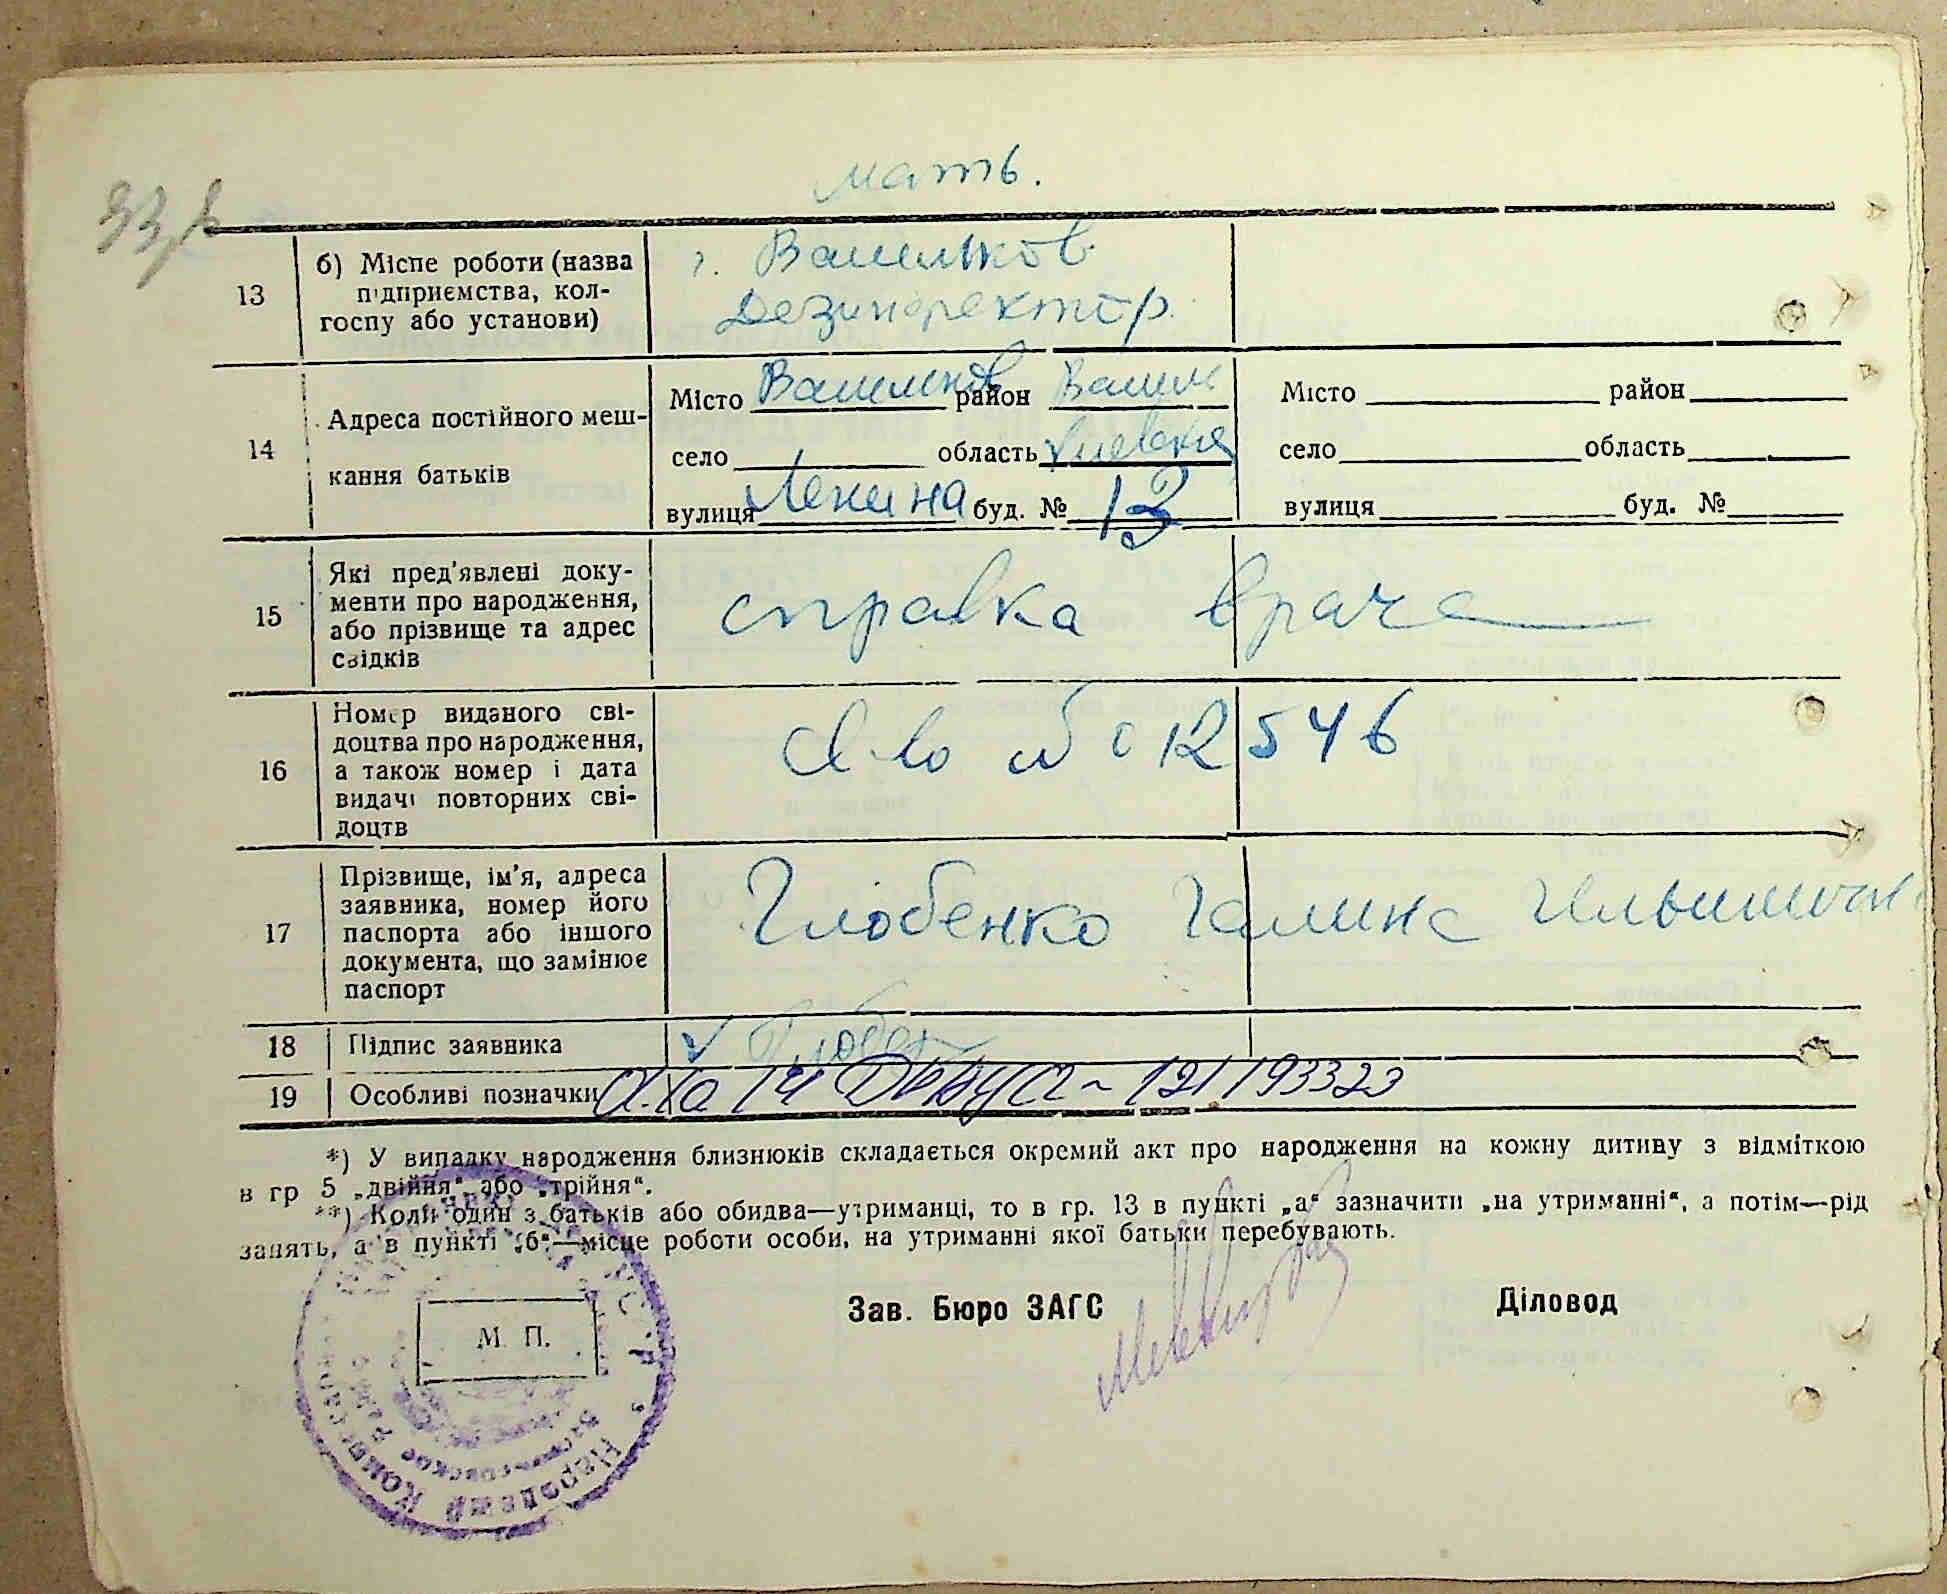 мать.
13
б) Місце роботи (назва
підприємства, кол-
госпу або установи)
г. Васильков
Дезинфектор.
14
Адреса постійного меш-
кання батьків
Місто Васильков район Васильк
село область Киевская
вулиця Ленина буд. № 13
Місто район
село область
вулиця буд. №
15
Які пред'явлені доку-
менти про народження,
або прізвище та адрес
свідків
справка врача
16
Номер виданого сві-
доцтва про народження,
а також номер і дата
видачі повторних сві-
доцтв
№ 012546
17
Прізвище, ім'я, адреса
заявника, номер його
паспорта або іншого
документа, що замінює
паспорт
Глобенко Галина Ильинична
18
Підпис заявника
Глобен
19
Особливі позначки
*) У випадку народження близнюків складається окремий акт про народження на кожну дитину з відміткою
в гр 5 „двійня“ або „трійня“.
**) Коли один з батьків або обидва—утриманці, то в гр. 13 в пункті „а“ зазначити „на утриманні“, а потім—рід
занять, а в пункті „б“—місце роботи особи, на утриманні якої батьки перебувають.
Зав. Бюро ЗАГС
Діловод
М. П.
Народний Коміс